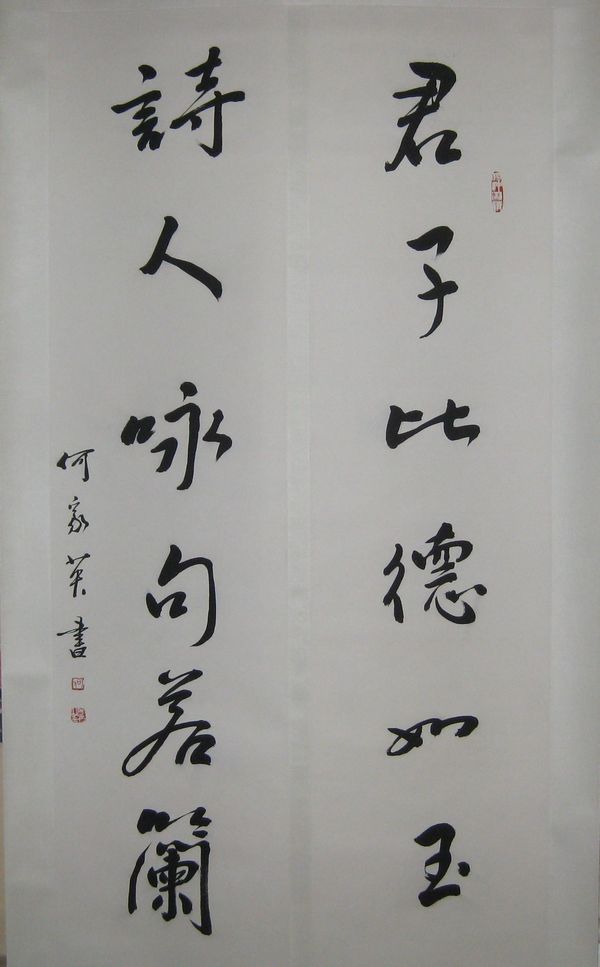 君子比德如玉
詩人咏句若蘭
何家英書